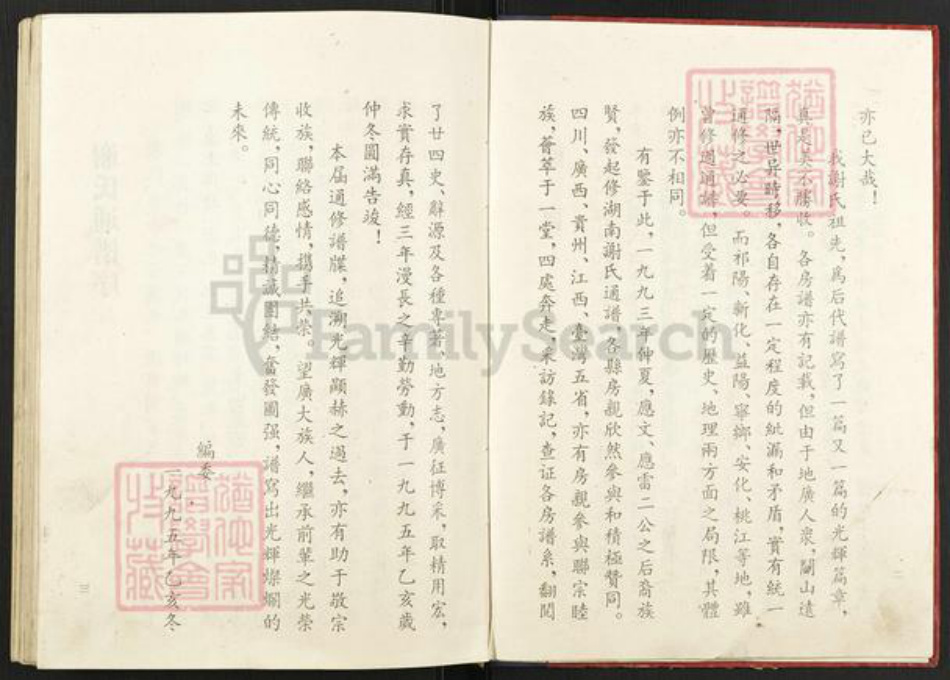 亦已大哉！
我謝氏祖先，爲后代譜寫了一篇又一篇的光輝篇章，
真是美不勝收。各房譜亦有記載，但由于地廣人衆，關山遠
隔，世异時移，各自存在一定程度的紕漏和矛盾，實有統一
通修之必要。而祁陽、新化、益陽、寧鄉、安化、桃江等地，雖
曾修過通譜，但受着一定的歷史、地理兩方面之局限，其體
例亦不相同。
有鑒于此，一九九三年仲夏，應文、應雷二公之后裔族
賢，發起修湖南謝氏通譜，各縣房親欣然參與和積極贊同。
四川、廣西、貴州、江西、臺灣五省，亦有房親參與聯宗睦
族，薈萃于一堂，四處奔走，采訪錄記，查证各房譜系，翻閱
二
了廿四史、辭源及各種專著、地方志，廣征博采，取精用宏，
求實存真，經三年漫長之辛勤勞動，于一九九五年乙亥歲
仲冬圓滿告竣！
本屆通修譜牒，追溯光輝顯赫之過去，亦有助于敬宗
收族，聯絡感情，携手共榮。望廣大族人，繼承前輩之光榮
傳統，同心同德，精誠團結，奮發圖强，譜寫出光輝燦爛的
未來。
編委
一九九五年乙亥冬
三
FamilySearch